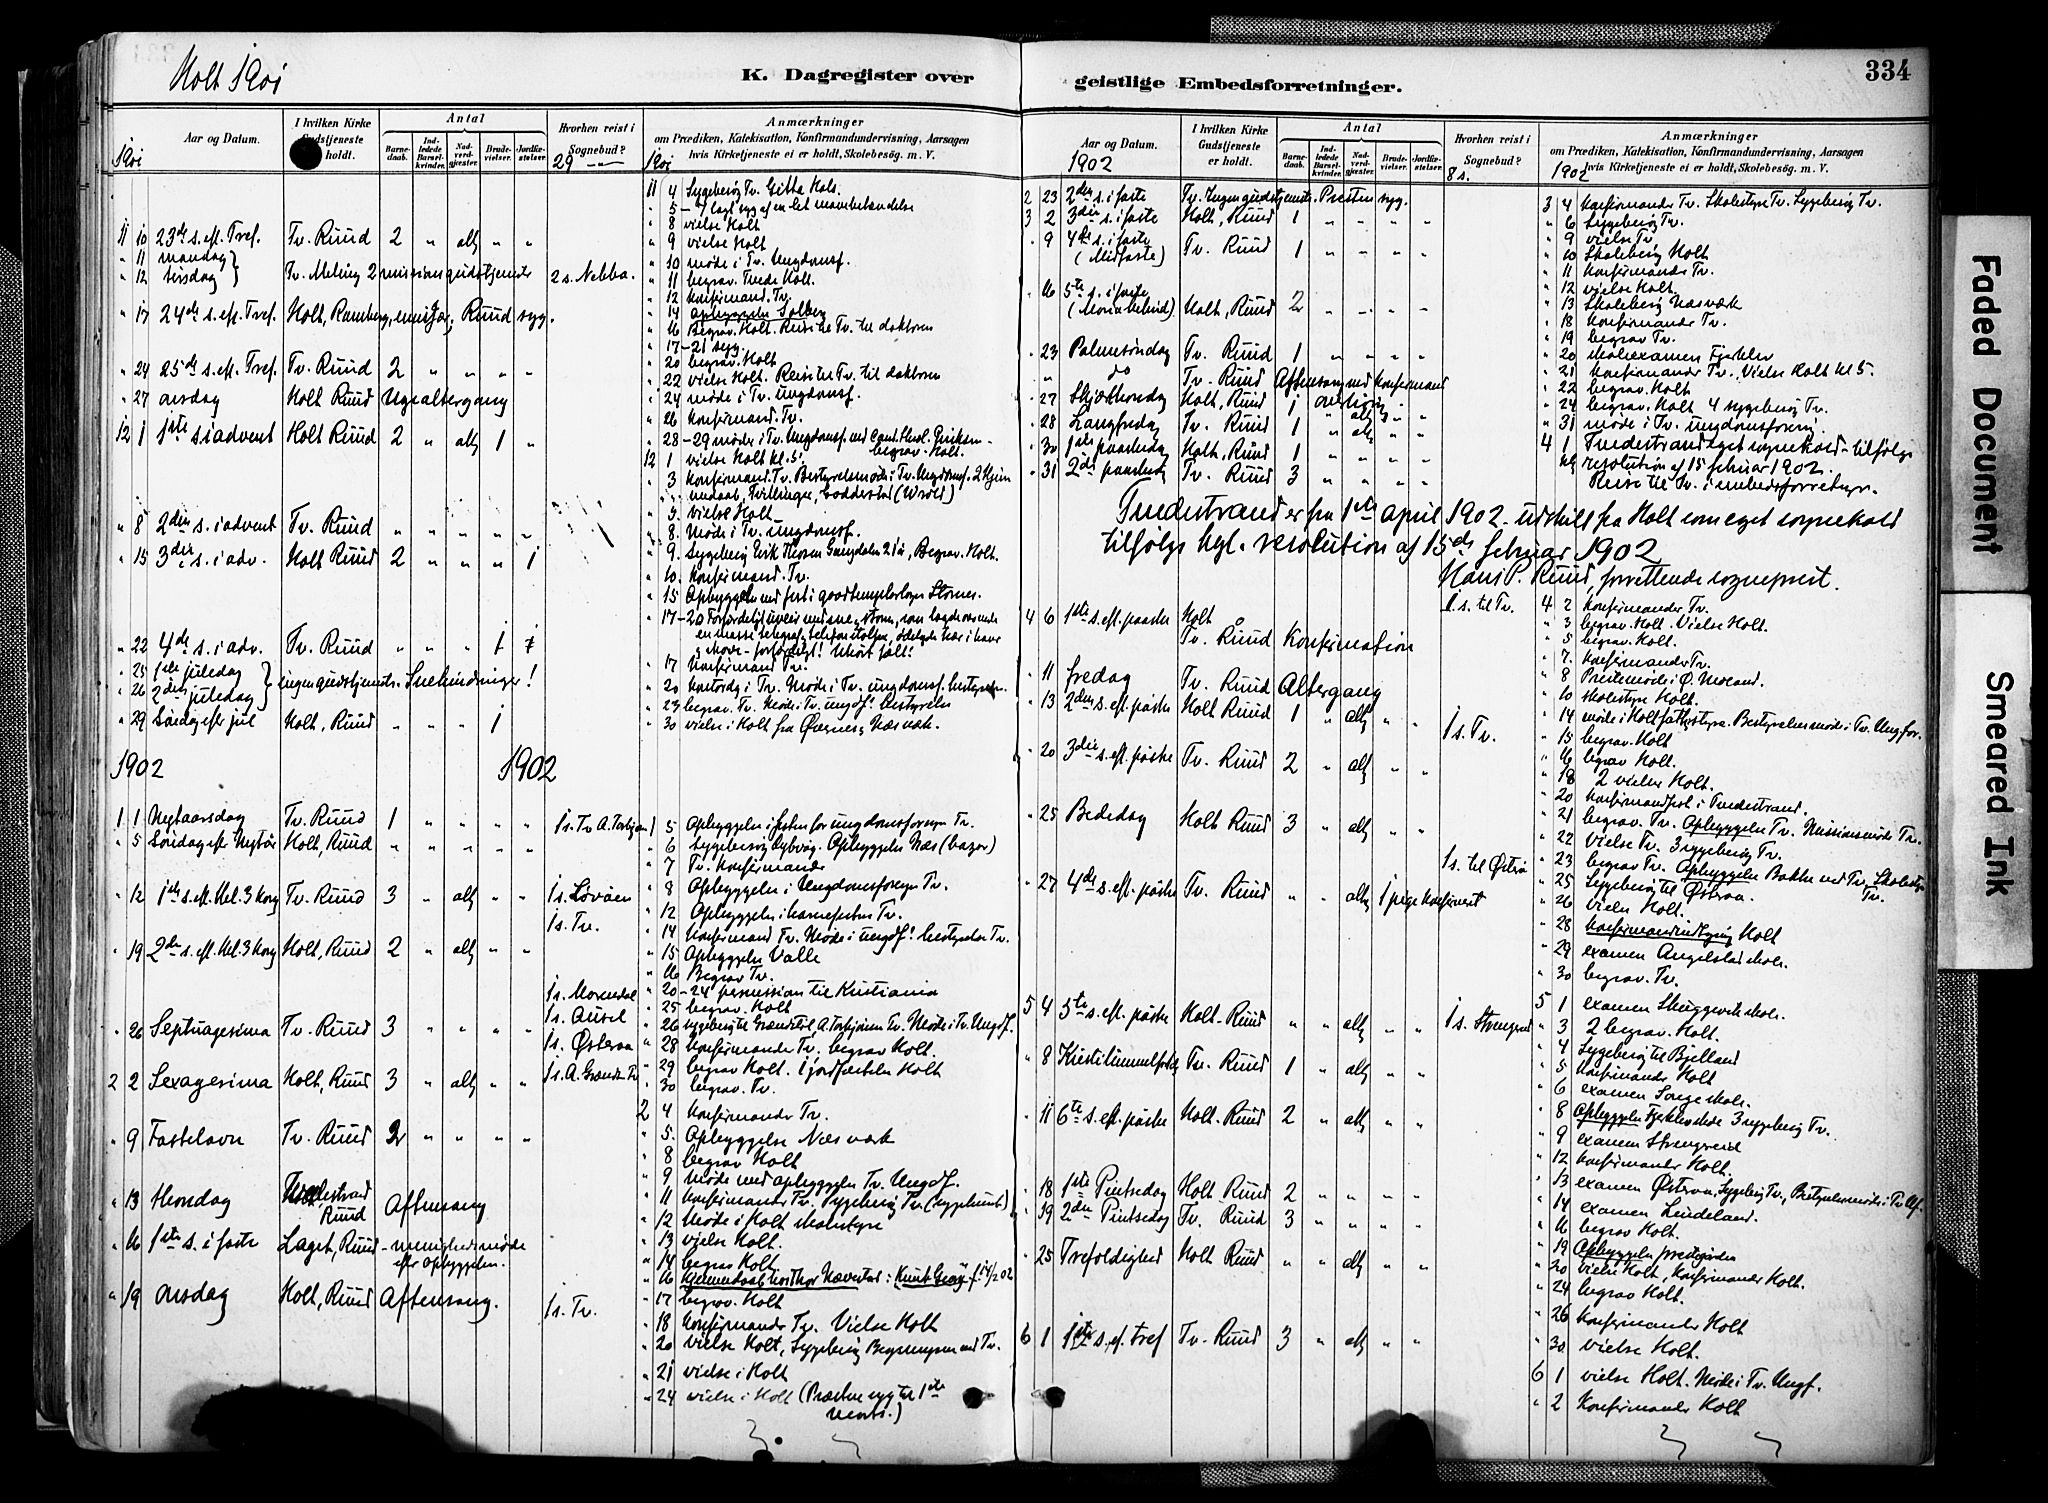 Holt 1901
K. Dagregister over geistlige Embedsforretninger.
334
Aar og Datum.
I hvilken Kirke Gudstjeneste holdt.
Antal
Barnedaab.
Indledede Barselkvinder.
Nadverdgjester.
Brudevielser.
Jordfæstelser.
Hvorhen reist i Sognebud?
Anmærkninger
om Prædiken, Katekisation, Konfirmandundervisning, Aarsagen
hvis Kirketjeneste ei er holdt, Skolebesøg. m. V.
1901
29
1901
11 10 23de s. eft. Tref. Tv. Ruud 2 " altg " "
" 11 mandag
" 12 tirsdag Tv. Meling 2 missionsgudstjenester 2 s. Nebba.
" 17 24de s. eft. Tref. Holt, Ramberg, Ruud syg.
" 24 25de s. eft. Tref. Tv. Ruud 2 " " " "
" 27 onsdag Holt Ruud Ugealtergang
12 1 1ste s i advent Holt Ruud 2 " altg 1 "
" 8 2den s. i advent Tv. Ruud " " " " "
" 15 3die s. i adv. Holt Ruud 2 " " " 1
" 22 4de s. i adv. Tv. Ruud " " " 1
" 25 1ste juledag
" 26 2den juledag ingen gudstjeneste. Snehindringer!
" 29 Søndag efter jul Holt, Ruud " " " 1
1902 1902
1 1 Nytaarsdag Tv. Ruud 1 " " " " 1 s. Tv A. Torbjørn
" 5 Søndag efter Nytår Holt, Ruud " " " " "
" 12 1ste s. eft. Hel. 3 Kong Tv. Ruud 3 " altg " " 1 s. Løvåen
1 s. Tv.
" 19 2den s. eft. Hel. 3 Kong Holt, Ruud 2 " altg " "
1 s. Morendal
1 s. Ausel
" 26 Septuagesima Tv. Ruud 3 " " " "
1 s. Østeraa
2 2 Sexagesima Holt, Ruud 3 " altg " " 1 s. A. Grændsen Tv
" 9 Fastelavn Tv. Ruud 2 " " " "
" 13 Thorsdag Ruud Aftensang
" 16 1ste s. i faste Laget, Ruud - menighedsmøde
efter opbyggelsen.
" 19 onsdag Holt, Ruud Aftensang. 1 s. Tv.
11 4 Sygebesøg Tv. Gitta Hals.
" 8 vielse Holt
" 9 vielse Holt
" 10 møde i Tv. Ungdomsf.
" 11 begrav. Holt.
" 12 Konfirmand. Tv.
" 14 Opbyggelse Solberg
" 16 Begrav. Holt. Reise til Tv. til doktoren
" 17-21 syg.
" 20 begrav. Holt
" 22 vielse Holt. Reise til Tv. til doktoren
" 24 møde i Tv. Ungdomsf.
" 26 Konfirmand. Tv.
" 28-29 møde i Tv. Ungdomsf. med Cand. theol. Eriksen
begrav. Holt.
12 1 vielse Holt kl. 5.
" 3 Konfirmand. Tv. Bestyrelsesmøde i Tv. Ungdomsf. 2 Hjem
medaab, Tvillinger, Goddestad
" 5 vielse Holt
" 8. Møde i Tv. Ungdomsf.
" 9. Sygebesøg Begrav. Holt.
" 10. Konfirmand. Tv.
" 15 Opbyggelse ved fest i goodtemplerlogen
" 17-20 Forfærdeligt uveir med sne, storm, som lagde overende
en masse telegraf, telefonstolper,
forfærdeligt! Uhørt før!
" 17 Konfirmand Tv.
" 20 Møde i Tv. Ungdomsf. bestyrelse.
" 23 begrav. Tv. Møde i Tv. Ungdf. Bestyrelse
" 30 vielse i Holt fra Øvernes, Næs værk.
1 5 Opbyggelse i festen for ungdomsforeningen Tv.
" 6 Sygebesøg Lybvåg. Opbyggelse Næs (bazar)
" 7 Tv. Konfirmander
" 8 Opbyggelse i Ungdomsforegn Tv.
" 12 Opbyggelse i barnefesten Tv.
" 14 Konfirmand Tv. Møde i Ungdf! bestyrelse Tv.
" 15 Opbyggelse Valle
" 16 Begrav Tv.
" 20-24 permission til Kristiania
" 25 begrav. Holt
" 26 A. Torbjørnsen Tv. Møde i Tv. Ungdf.
" 28 Konfirmander Tv. begrav Holt.
" 29 begrav Holt. 1 jordfæstelse Holt
" 30 begrav. Tv.
2 4 Konfirmander Tv.
" 5. Opbyggelse Næs værk
" 8 begrav Holt
" 9 Møde med opbyggelse Tv. Ungdf.
" 11 Konfirmander Tv. Sygebesøg Tv.
" 12 Møde i Holt skolestyre
" 13 vielse Holt.
" 14 begrav Holt.
" 16 Hjemmedaab
" 17 begrav. Holt
" 18 Konfirmander Tv. Vielse Holt
" 20 vielse Holt, Sygebesøg
" 21 vielse i Holt
" 24 vielse i Holt (Presten syg til 1ste
Marts.)
Aar og Datum.
I hvilken Kirke Gudstjeneste er holdt.
Antal
Barnedaab.
Indledede Barselkvinder.
Nadverdgjester.
Brudevielser.
Jordfæstelser.
Hvorhen reist i Sognebud?
Anmærkninger
om Prædiken, Katekisation, Konfirmandundervisning, Aarsagen
hvis Kirketjeneste ei er holdt, Skolebesøg. m. V.
1902
8 s.
1902
2 23 2den s. i faste Tv. Ingen gudstjeneste. Presten syg.
3 2 3die s. i faste Holt, Ruud 1 " " " "
" 9 4de s. i faste (Midfaste) Tv. Ruud 1 " " " "
" 16 5te s. i faste (Maria bebud) Holt, Ruud 2 " " " "
" 23 Palmesøndag Tv. Ruud 1 " " " "
" " do Tv. Ruud Aftensang med Konfirmand
" 27 Skjærthorsdag Holt, Ruud 1
" 28 Langfredag Tv. Ruud 1 " altg " "
" 30 1ste paaskedag Holt, Ruud 1 " " " "
" 31 2den paaskedag Tv. Ruud 3 " " " "
Tvedestrand er fra 1ste april 1902 udskilt fra Holt som eget sognekald
tilfølge kgl. resolution af 15de februar 1902
Hans P. Ruud, forrettende sogneprest.
4 6 1ste s. eft. paaske Holt 1 s. til Tv.
Tv. Ruud Konfirmation
" 11 fredag Tv. Ruud Altergang
" 13 2den s. eft. påske Holt Ruud 1 " altg " " 1 s. Tv.
" 20 3die s. eft. påske Tv. Ruud 2 " altg " "
" 25 Bededag Holt Ruud 3 " altg " "
1 s. til Østraa
" 27 4de s. eft. påske Tv. Ruud " " altg 1 pige konfirmert
5 4 5te s. eft. påske Holt. Ruud " " altg " " 1 s. Strengereid
" 8 Kristi himmelfartsdag Tv. Ruud 1 " altg " "
" 11 6te s. eft. påske Holt. Ruud 2 " altg " "
" 18 1ste Pintsedag Holt Ruud 2 " " " "
" 19 2den Pintsedag Tv. Ruud 3 " " " "
" 25 Trefoldighed Holt Ruud " " altg " "
6 1 1ste s. ef. tref Tv. Ruud 3 " altg " "
3 4 Konfirmander Tv. Skolestyre Tv. Sygebesøg Tv.
" 6 Sygebesøg Tv.
" 9 vielse Tv.
" 10 Skolebesøg Holt
" 11 Konfirmander Tv.
" 12 vielse Holt.
" 13 Skolebesøg Næsværk
" 18 Konfirmander Tv.
" 19 begrav Tv.
" 20 skoleexamen
" 21 Konfirmander Tv. Vielse Holt kl 5.
" 22 begrav. Holt
" 24 begrav. Holt 4 sygebesøg Tv.
" 31 møde i Tv. ungdomsforening.
4 1 Tvedestrand eget sognekald - tilfølge
kgl resolution af 15 februar 1902.
Reise til Tv. i embedsforretngr.
4 2 Konfirmander Tv.
" 3 begrav. Holt. Vielse Holt.
" 5 begrav. Holt.
" 7. Konfirmander Tv.
" 8 Prestemøde i Ø. Moland.
" 10 skolestyre Holt.
" 14 møde i Holt fattigstyre. Bestyrelsesmøde i Tv. Ungfor.
" 15 begrav. Holt
" 16 begrav Holt.
" 18 2 vielser Holt.
" 20 Konfirmandfest i Tvedestrand.
" 21 begrav. Tv. Opbyggelse Tv. Missionsmøde Tv.
" 22 Vielse Tv. 3 sygebesøg Tv.
" 23 begrav Tv. Opbyggelse Bakke ved Tv. Skolestyre
Tv.
" 25 Sygebesøg til Østeraa.
" 26 vielse Holt.
" 28 Konfirmandindtegning Holt
" 29 examen Angelstad skole.
" 30 begrav. Tv.
5 1 examen Skuggevik skole.
" 3 2 begrav. Holt.
" 4 Sygebesøg til Bjelland
" 5 Konfirmander Holt
" 6 examen Songe skole.
" 8 Opbyggelse 3 sygebesøg Tv.
" 9 examen Strengereid
" 12 Konfirmander Holt.
" 13 examen Østeraa, Sygebesøg Tv., Bestyrelsesmøde i Tv Uf.
" 14 examen Lindeland.
" 16 begrav Holt.
" 19 Opbyggelse prestgården
" 20 vielse Holt, Konfirmander Holt.
" 24 begrav Holt.
" 26 Konfirmander Holt
" 30 vielse Holt.
6 1 vielse Holt. Møde i Tv. Ungf.
" 2 Konfirmander Holt
Faded Document
Smeared Ink